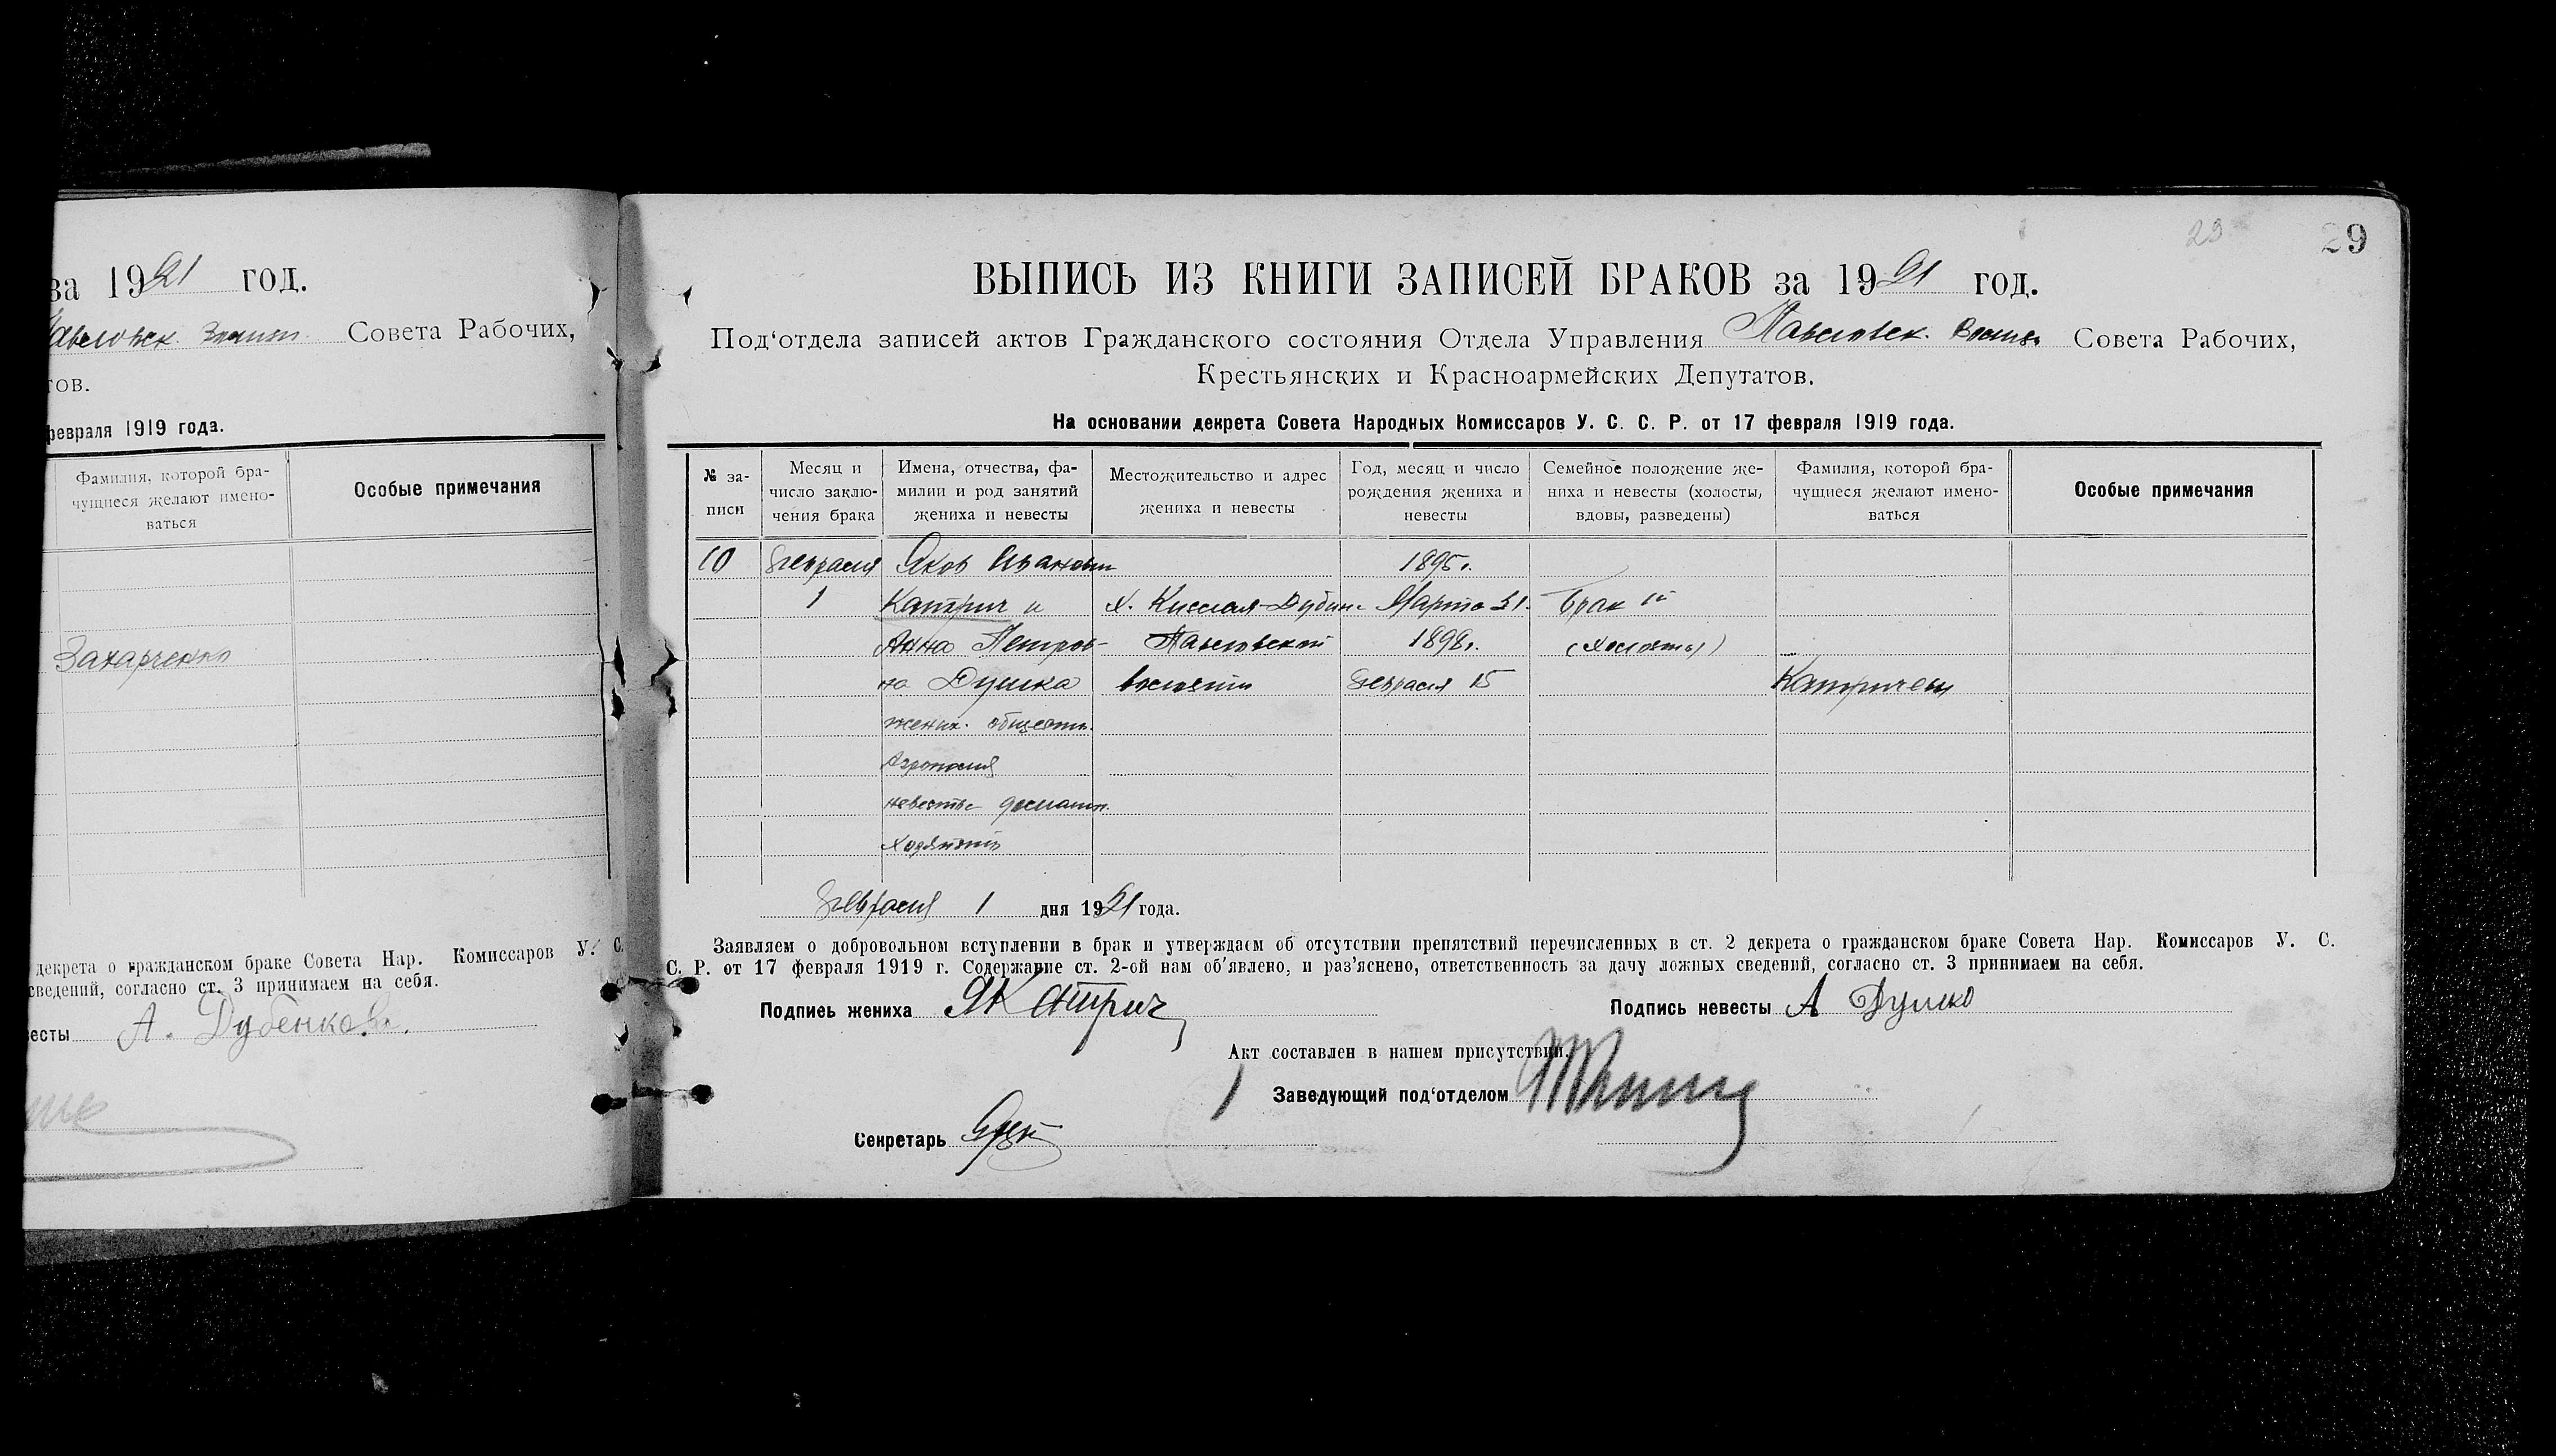 за 1921 год.
Совета Рабочих,
тов.
февраля 1919 года.
Фамилия, которой бра-
чущиеся желают имено-
ваться
Особые примечания
Захарченко
декрета о гражданском браке Совета Нар. Комиссаров У. С.
сведений, согласно ст. 3 принимаем на себя.
весты А. Дубенкова.
29
29
ВЫПИСЬ ИЗ КНИГИ ЗАПИСЕЙ БРАКОВ за 1921 год.
Под‘отдела записей актов Гражданского состояния Отдела Управления Павловск. Волись. Совета Рабочих,
Крестьянских и Красноармейских Депутатов.
На основании декрета Совета Народных Комиссаров У. С. С. Р. от 17 февраля 1919 года.
№ за-
писи
Месяц и
число заклю-
чения брака
Имена, отчества, фа-
милии и род занятий
жениха и невесты
Местожительство и адрес
жениха и невесты
Год, месяц и число
рождения жениха и
невесты
Семейное положение же-
ниха и невесты (холосты,
вдовы, разведены)
Фамилия, которой бра-
чущиеся желают имено-
ваться
Особые примечания
10 февраля Яков Иванович 1895 г.
1 Катрич и х. Кислая-Дубина Марта 21 брак 1й
Анна Петров- Павловской 1898 г. (холосты)
на Душка волости февраля 15 Катричеы
жених. обществ.
Агрономия
невесты домашн.
хозяйств
февраля 1 дня 1921 года.
Заявляем о добровольном вступлении в брак и утверждаем об отсутствии препятствий перечисленных в ст. 2 декрета о гражданском браке Совета Нар. Комиссаров У. С.
С. Р. от 17 февраля 1919 г. Содержание ст. 2-ой нам об'явлено, и раз'яснено, ответственность за дачу ложных сведений, согласно ст. 3 принимаем на себя.
Подпись жениха ЯКатрич
Подпись невесты А Душко
Акт составлен в нашем присутствии.
Заведующий под‘отделом
Секретарь